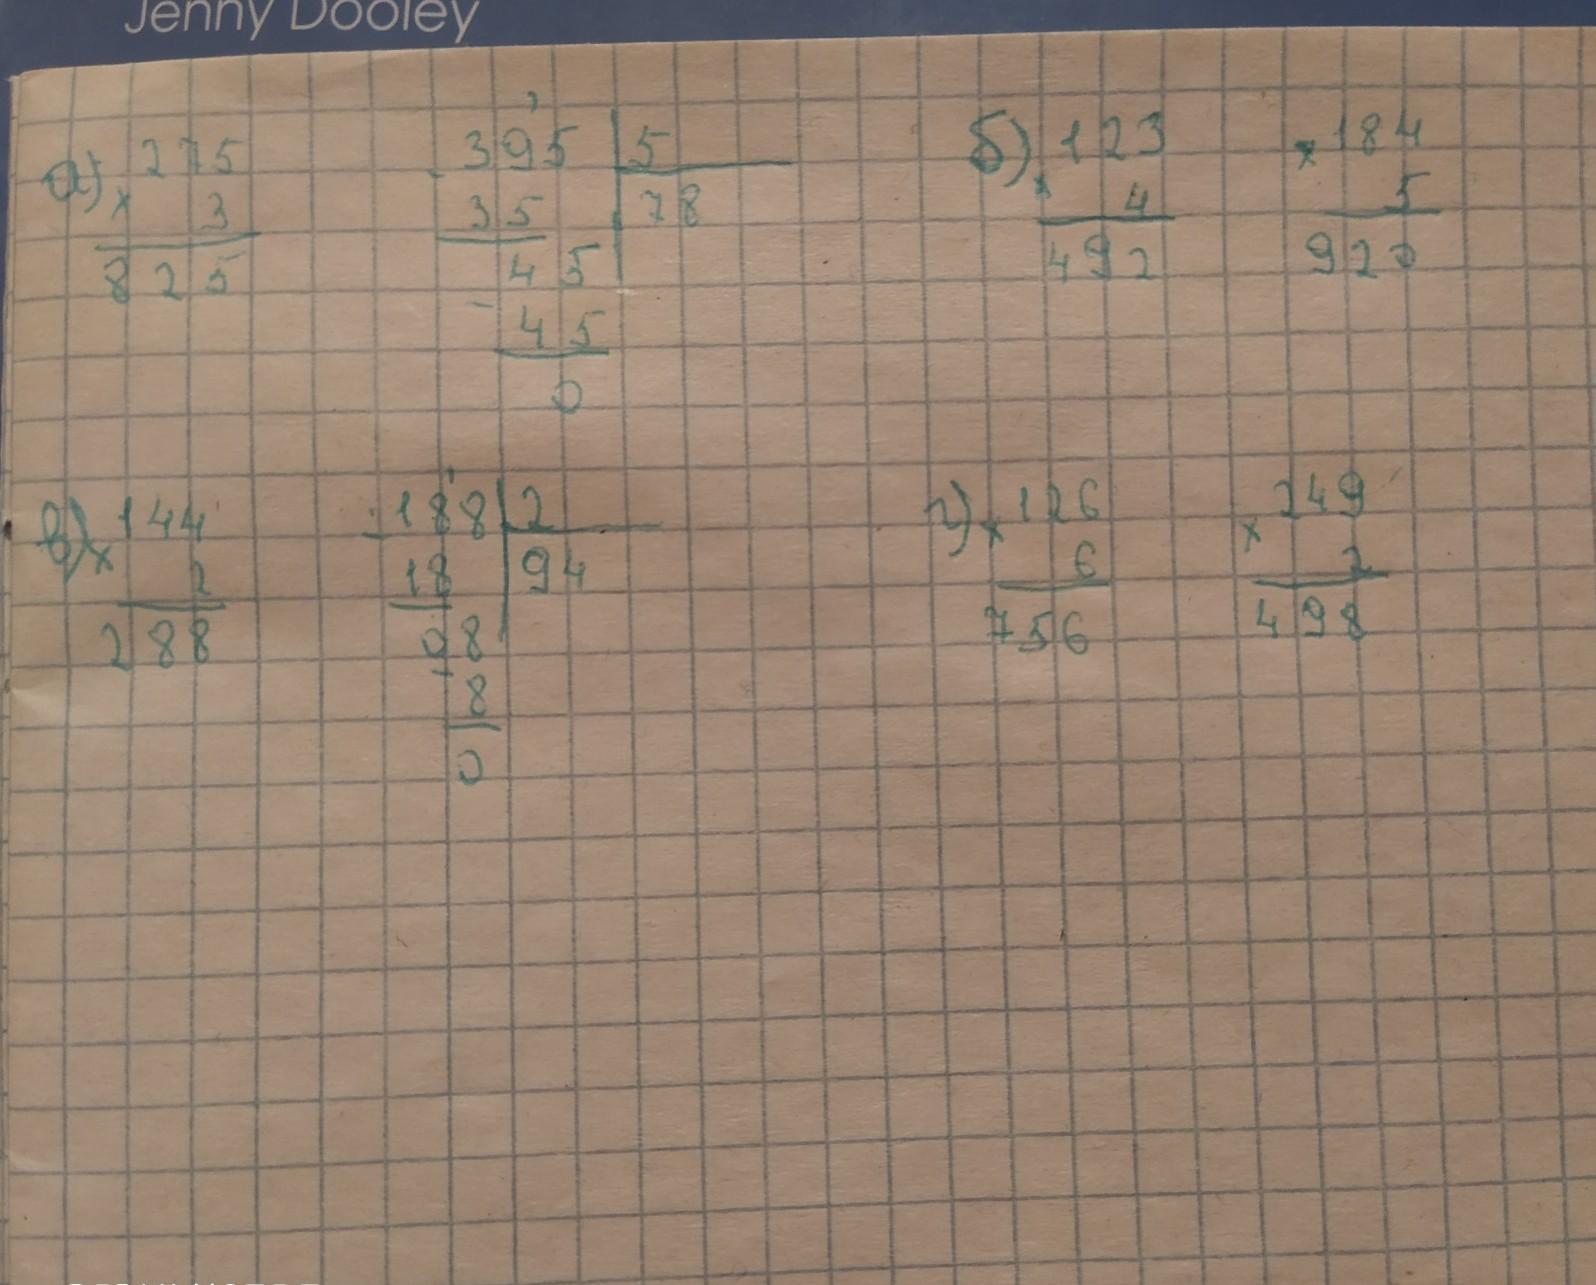 Jenny Dooley
а) 275
× 3
825
- 395 | 5
35 | 78
45
- 45
0
б) 123
× 4
492
× 184
5
920
в) 144
× 2
288
- 188 | 2
18 | 94
08
- 8
0
г) 126
× 6
756
249
× 2
498